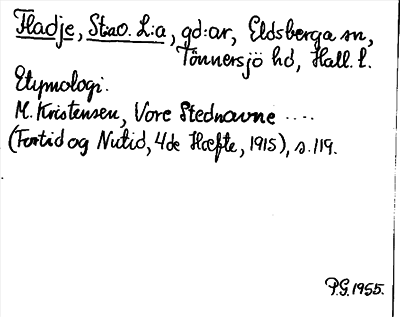 Fladje, St:ao. L:a, gd:ar, Eldsberga sn,
Tönnersjö hd, Hall. l.
Etymologi.
M. Kristensen, Vore Stednavne ....
(Fortid og Nutid, 4de Hæfte, 1915), s. 119.
P.G. 1955.